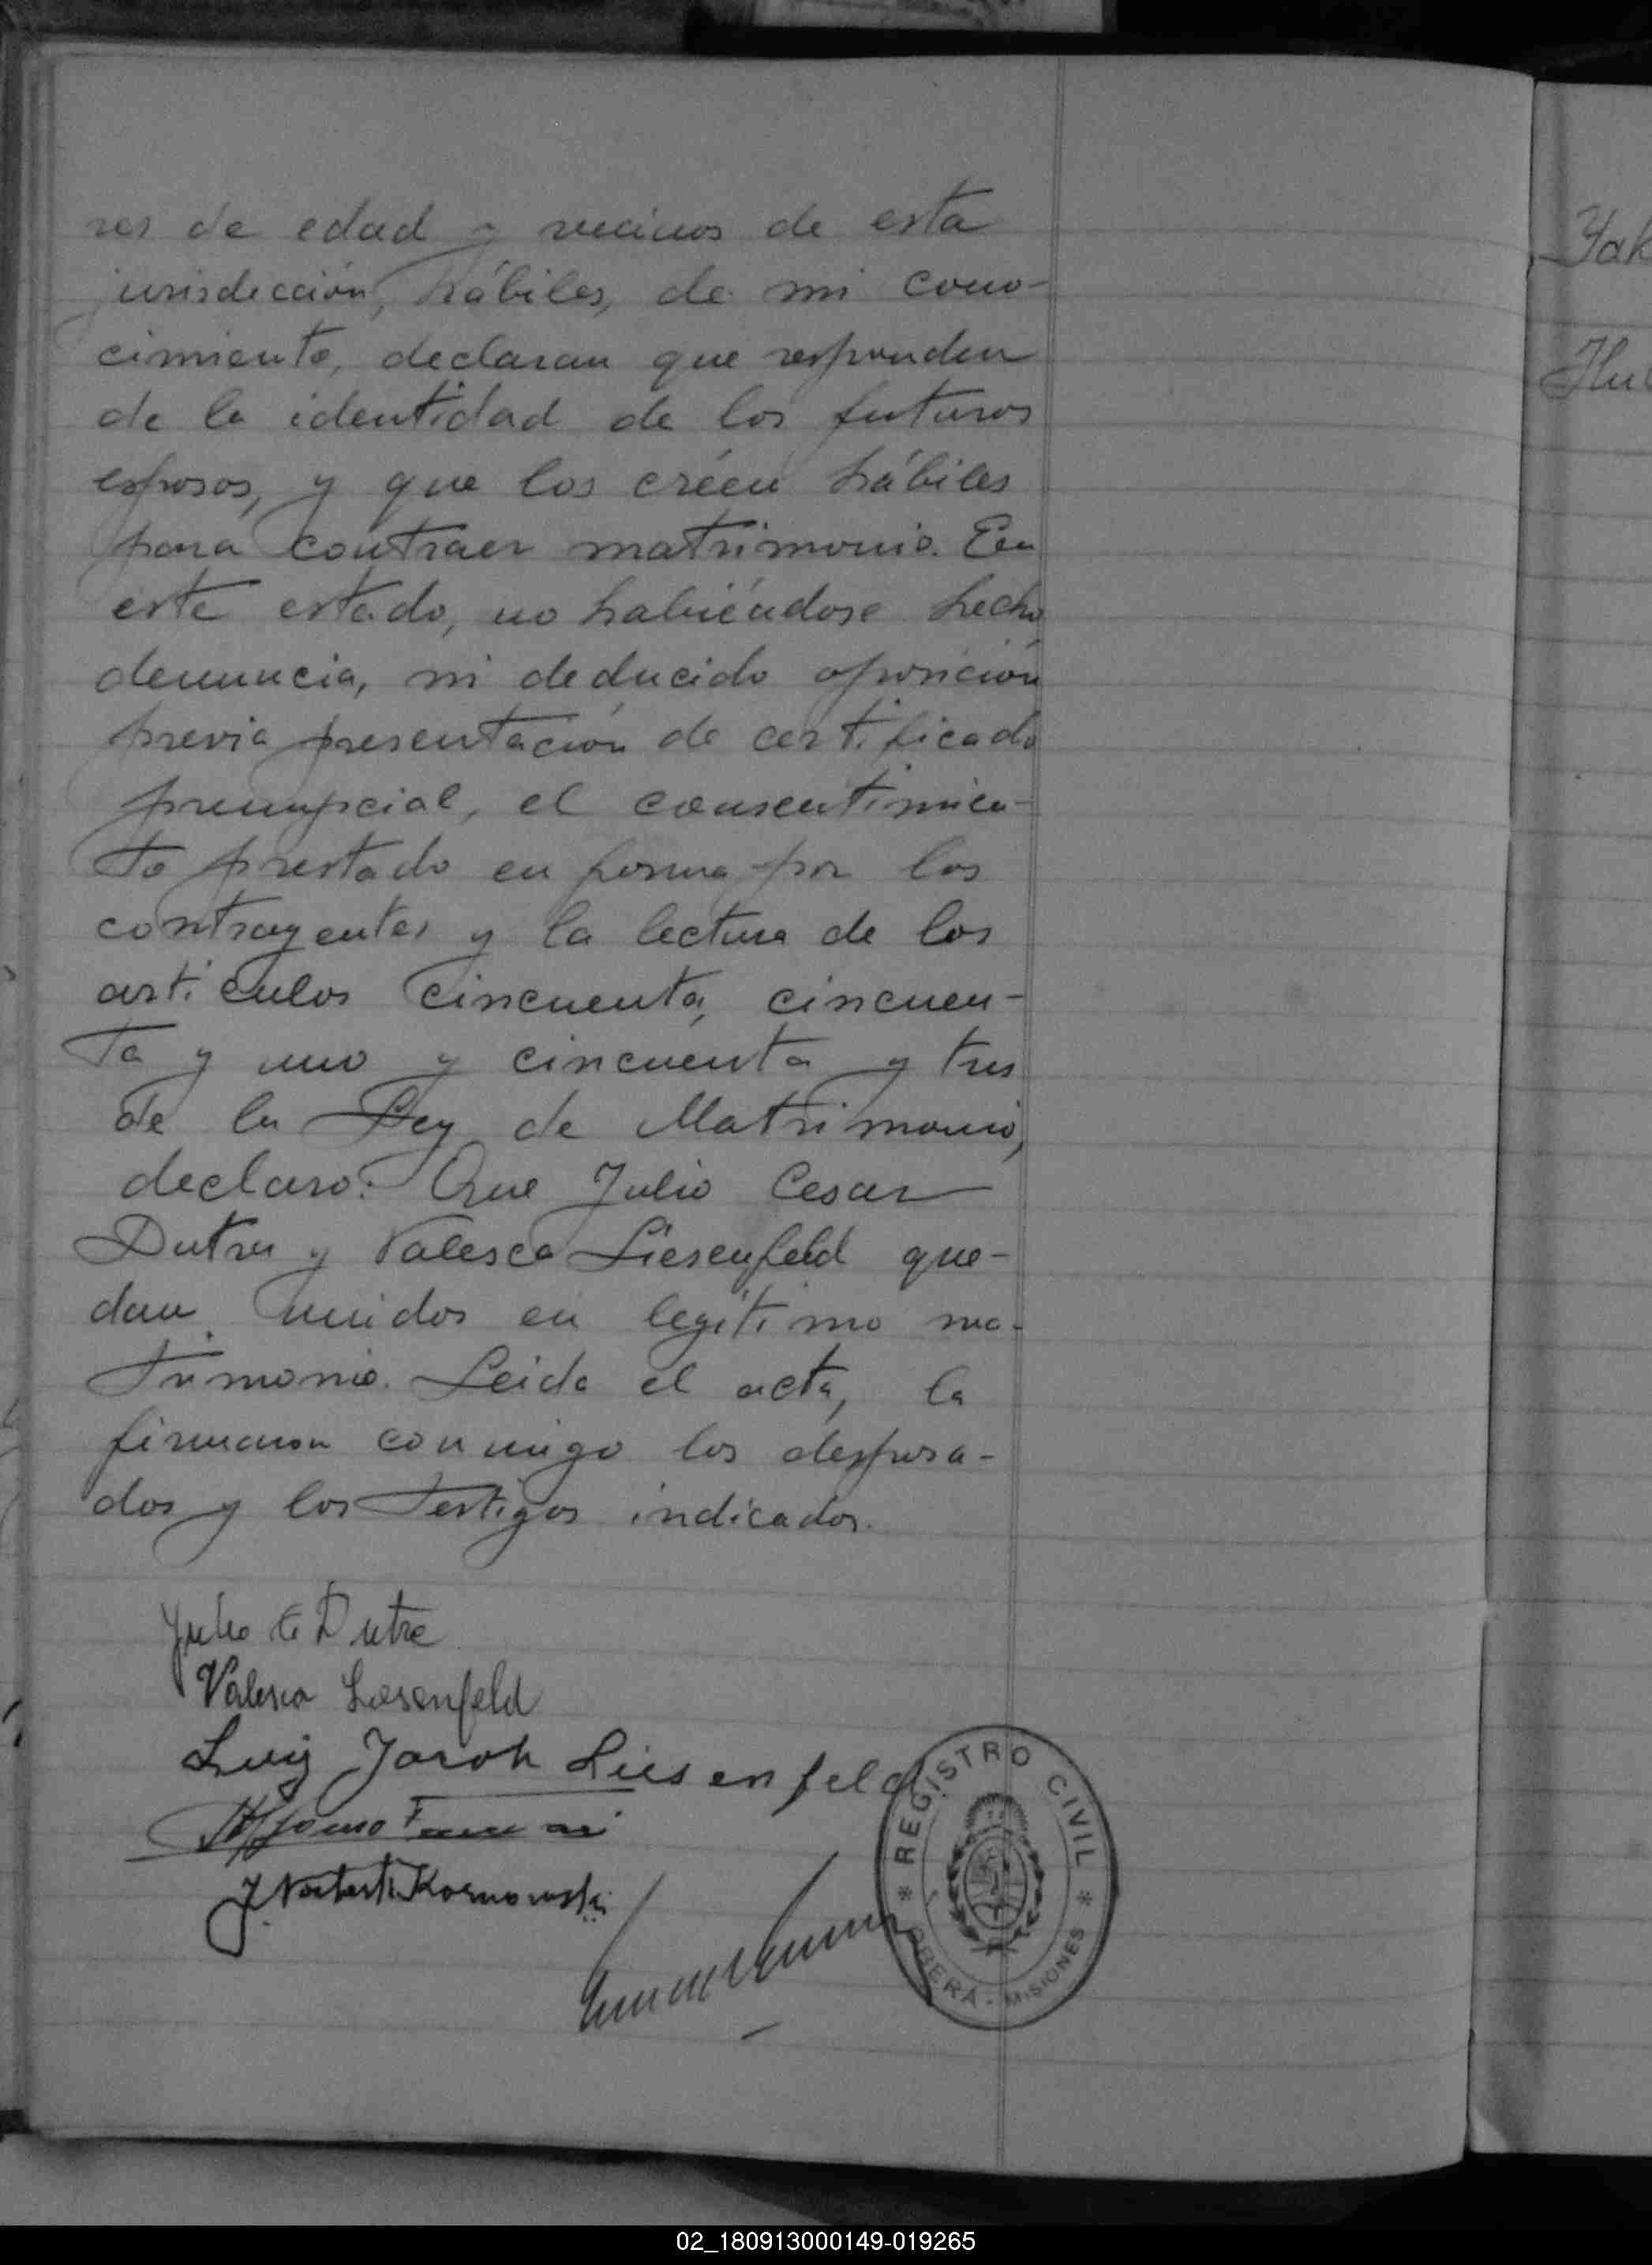 res de edad y vecinos de esta
jurisdicción, hábiles, de mi cono-
cimiento, declaran que responden
de la identidad de los futuros
esposos, y que los créen hábiles
para contraer matrimonio. En
este estado, no habiéndose hecho
denuncia, ni deducido oposición
previa presentación de certificado
prenupcial, el consentimien-
to prestado en forma por los
contrayentes y la lectura de los
artículos cincuenta, cincuen-
ta y uno y cincuenta y tres
de la Ley de Matrimonio,
declaro: Que Julio Cesar
Dutra y Valesca Liesenfeld que-
dan unidos en legítimo ma-
trimonio. Leida el acta, la
firmaron conmigo los desposa-
dos y los testigos indicados.
Julio C Dutra
Valesca Liesenfeld
Luiz Jacob Liesenfeld
J Norberto
REGISTRO CIVIL
OBERÁ - MISIONES
Yak
02_180913000149-019265